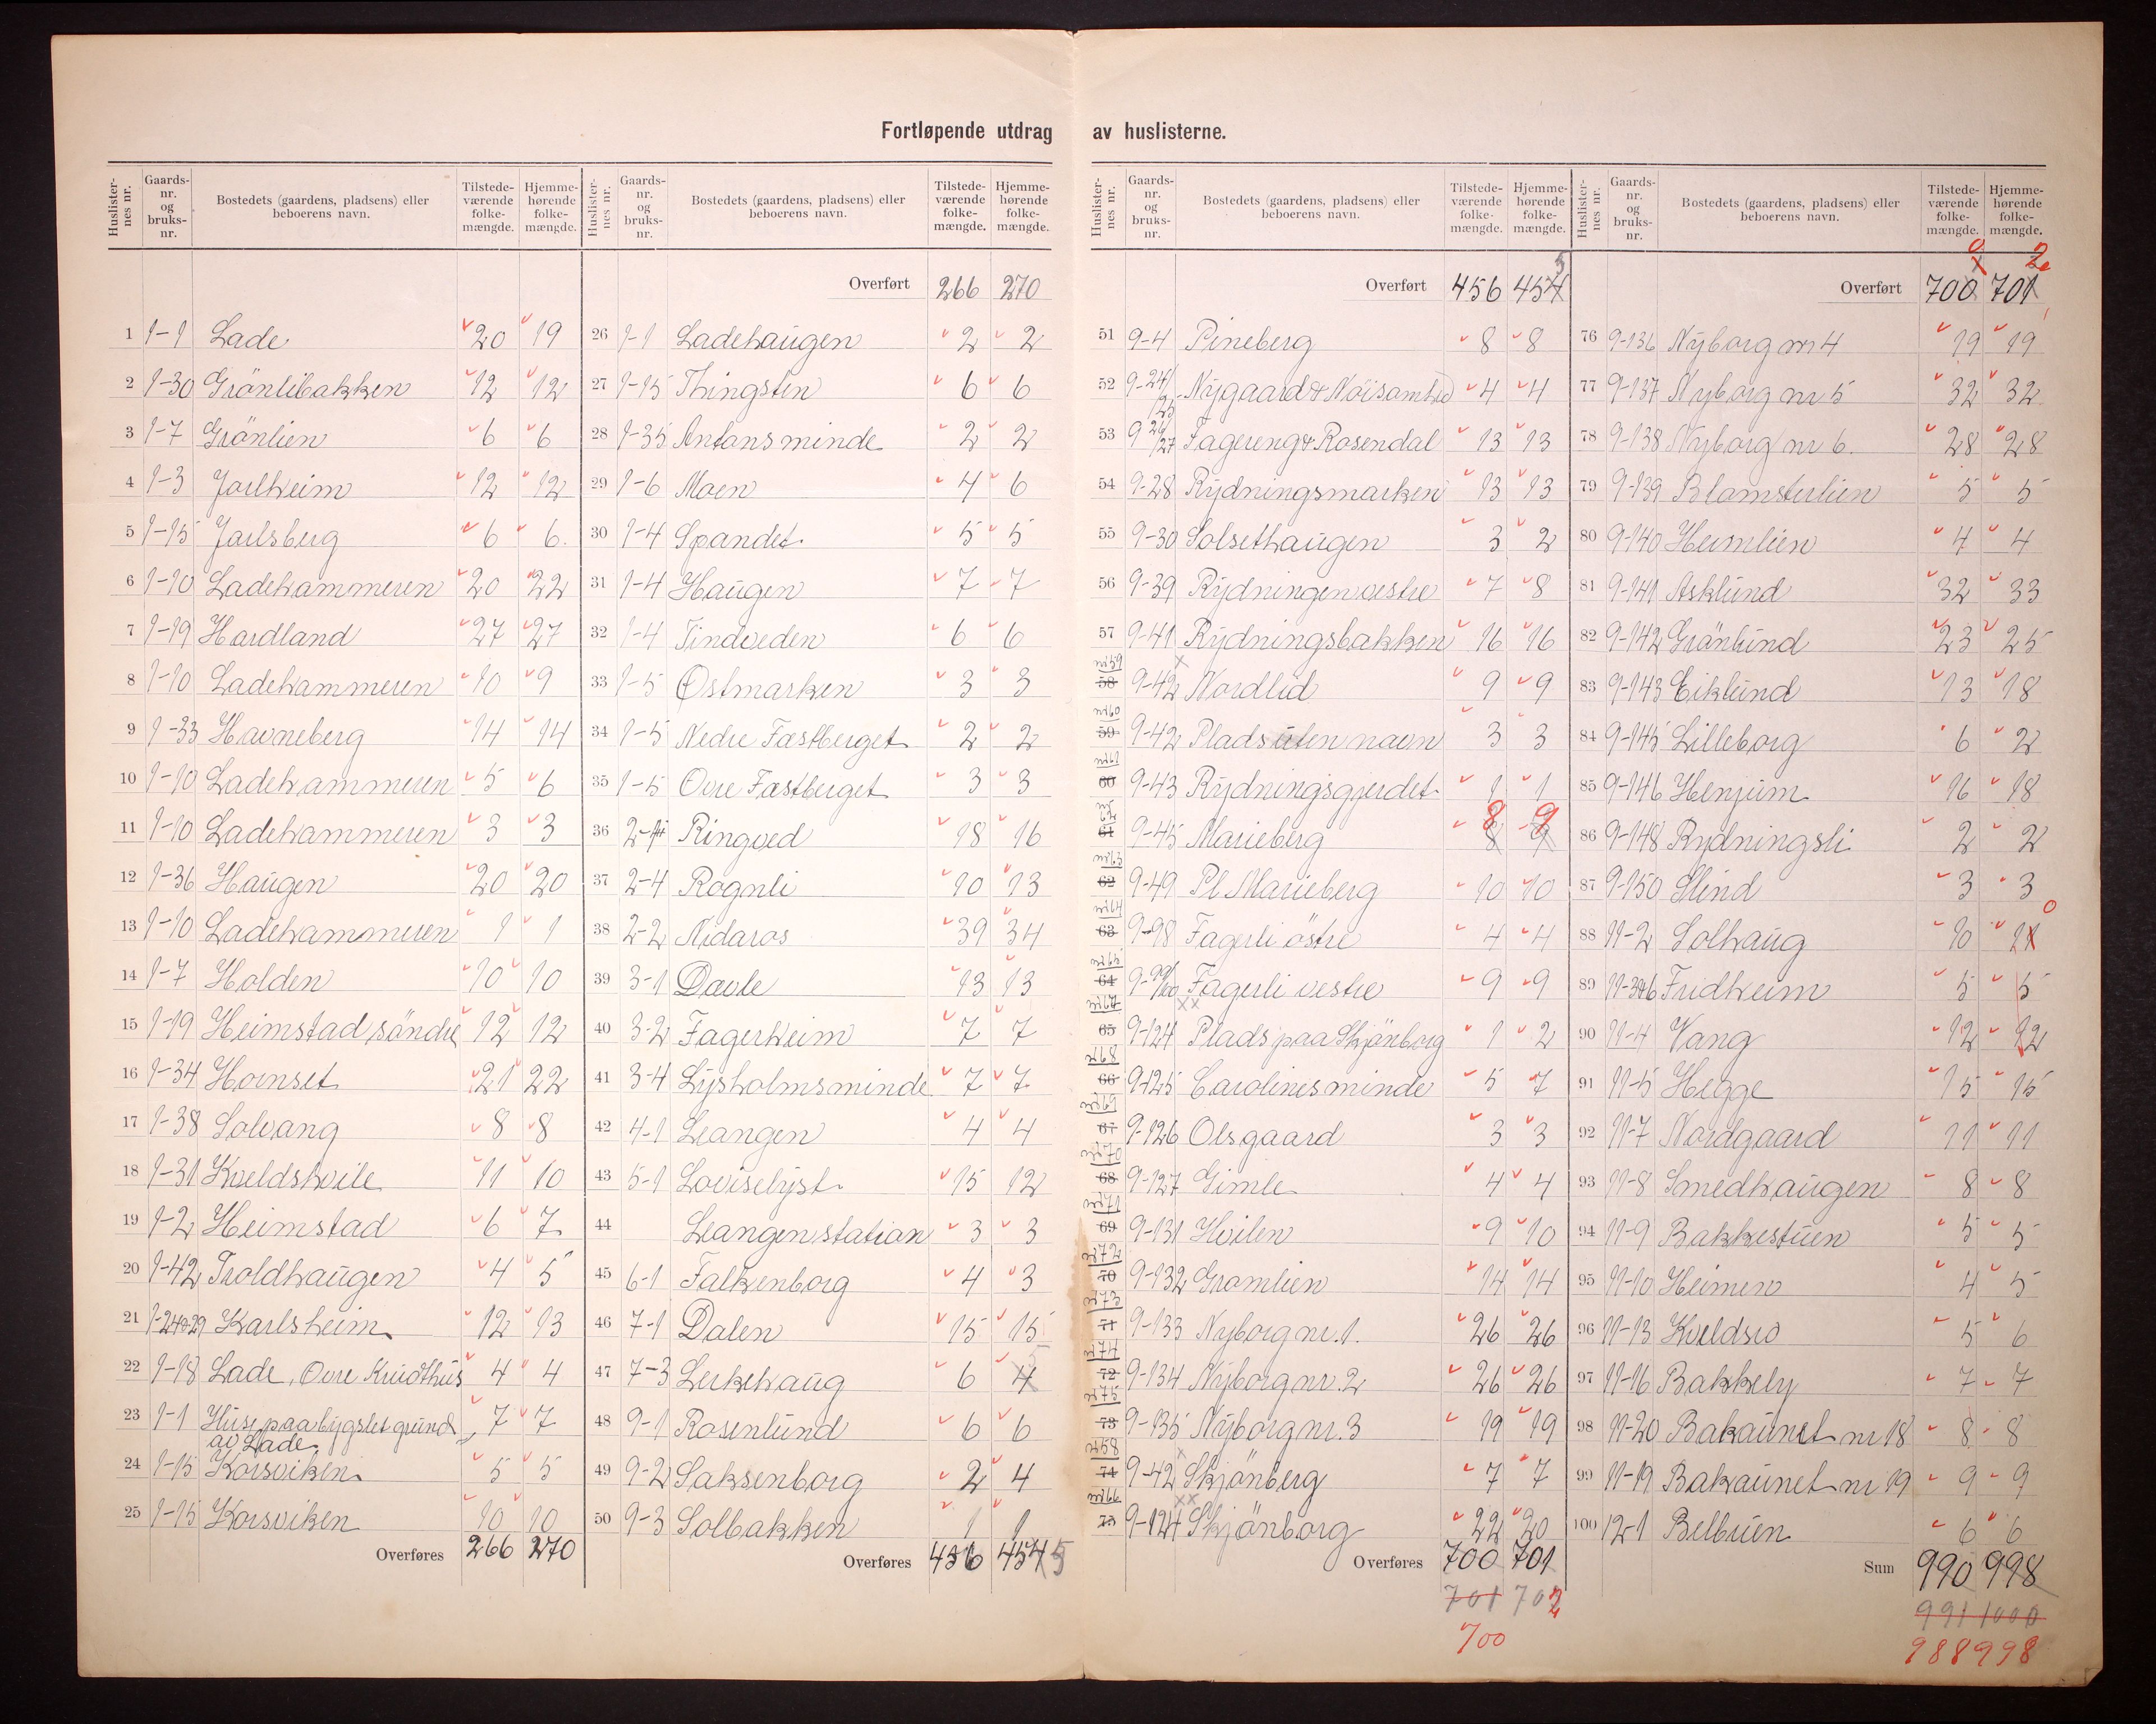 Fortløpende utdrag av huslisterne.
Huslisternes nr. | Gaards-nr. og bruks-nr. | Bostedets (gaardens, pladsens) eller beboerens navn. | Tilstede-værende folke-mængde. | Hjemme-hørende folke-mængde.
1 1-1 Lade 20 19
2 1-30 Grönlibakken 12 12
3 1-7 Grönlien 6 6
4 1-3 Jarlheim 12 12
5 1-15 Jarlsberg 6 6.
6 1-10 Ladehammeren 20 22
7 1-19 Hardland 27 27
8 1-10 Ladehammeren 10 9
9 1-33 Havneberg 14 14
10 1-10 Ladehammeren 5 6
11 1-10 Ladehammeren 3 3
12 1-36 Haugen 20 20
13 1-10 Ladehammeren 1 1
14 1-7 Holden 10 10
15 1-19 Heimstad söndre 12 12
16 1-34 Hornset 21 22
17 1-38 Solvang 8 8
18 1-31 Kveldshvile 11 10
19 1-2 Heimstad 6 7
20 1-42 Troldhaugen 4 5
21 1-24&29 Karlsheim 12 13
22 1-18 Lade, Ovre Krudthus 4 4
23 1-1 Huse paa bygslet grund av Lade. 7 7
24 1-15 Korsviken 5 5
25 1-15 Korsviken 10 10
Overføres 266 270
Huslisternes nr. | Gaards-nr. og bruks-nr. | Bostedets (gaardens, pladsens) eller beboerens navn. | Tilstede-værende folke-mængde. | Hjemme-hørende folke-mængde.
Overført 266 270
26 1-1 Ladehaugen 2 2
27 1-15 Thingsten 6 6
28 1-35 Antonsminde 2 2
29 1-6 Moen 4 6
30 1-4 Spandet 5 5
31 1-4 Haugen 7 7
32 1-4 Tindveden 6 6
33 1-5 Østmarken 3 3
34 1-5 Nedre Fæstberget 2 2
35 1-5 Ovre Fæstberget 3 3
36 Ringved 18 16
37 2-4 Rognli 10 13
38 2-2 Nidaros 39 34
39 3-1 Davle 13 13
40 3-2 Fagerheim 7 7
41 3-4 Lysholmsminde 7 7
42 4-1 Leangen 4 4
43 5-1 Loviselyst 15 12
44 Leangen station 3 3
45 6-1 Falkenborg 4 3
46 7-1 Dalen 15 15
47 7-3 Lerkehaug 6 4 5
48 9-1 Rosenlund 6 6
49 9-2 Saksenborg 2 4
50 9-3 Solbakken 1 1
Overføres 456 454 5
Huslisternes nr. | Gaards-nr. og bruks-nr. | Bostedets (gaardens, pladsens) eller beboerens navn. | Tilstede-værende folke-mængde. | Hjemme-hørende folke-mængde.
5
Overført 456 454
51 9-4 Pineberg 8 8
52 9-24/25 Nygaard & Nöisomhed 4 4
53 9 26/27 Fagereng & Rosendal 13 13
54 9-28 Rydningsmarken 13 13
55 9-30 Solsethaugen 3 2
56 9-39 Rydningen vestre 7 8
57 9-41 Rydningsbakken 16 16
nr 59 58 9-42 x Nordlid 9 9
nr 60 59 9-42 Plads uten navn 3 3
nr 61 60 9-43 Rydningsgjerdet 1 1
nr 62 61 9-45 Marieberg 8 9 8 9
nr 63 62 9-49 Pl Marieberg 10 10
nr 64 63 9-98 Fagerli östre 4 4
nr 65 64 9-99/100 Fagerli vestre 9 9
nr 67 65 9-124 xx Plads paa Skjönborg 1 2
nr 68 66 9-125 Carolinesminde 5 7
nr 69 67 9-126 Olsgaard 3 3
nr 70 68 9-127 Gimle 4 4
nr 71 69 9-131 Hvilen 9 10
nr 72 70 9-132 Gromlien 14 14
nr 73 71 9-133 Nyborg nr. 1. 26 26
nr 74 72 9-134 Nyborg nr. 2 26 26
nr 75 73 9-135 Nyborg nr. 3 19 19
nr 58 74 9-42 x Skjönberg 7 7
nr 66 75 9-124 xx Skjönborg 22 20
Overføres 700 701
701 702
700
Huslisternes nr. | Gaards-nr. og bruks-nr. | Bostedets (gaardens, pladsens) eller beboerens navn. | Tilstede-værende folke-mængde. | Hjemme-hørende folke-mængde.
0 2
Overført 700 701
76 9-136 Nyborg nr 4 19 19
77 9-137 Nyborg nr 5 32 32
78 9-138 Nyborg nr 6. 28 28
79 9-139 Blomsterlien 5 5
80 9-140 Heimlien 4 4
81 9-141 Asklund 32 33
82 9-142 Grönlund 23 25
83 9-143 Eiklund 13 18
84 9-145 Lilleborg 6 2
85 9-146 Henjum 16 18
86 9-148 Rydningsli 2 2
87 9-150 Slind 3 3
88 11-2 Solhaug 10 11 0
89 11-3&6 Fridheim 5 5
90 11-4 Vang 12 12
91 11-5 Hegge 15 15
92 11-7 Nordgaard 11 11
93 11-8 Smedhaugen 8 8
94 11-9 Bakkestuen 5 5
95 11-10 Heimen 4 5
96 11-13 Kveldsro 5 6
97 11-16 Bakkely 7 7
98 11-20 Bakaunet nr 18 8 8
99 11-19 Bakaunet nr 19 9 9
100 12-1 Belbuen 6 6
Sum 990 998
991 1000
988 998